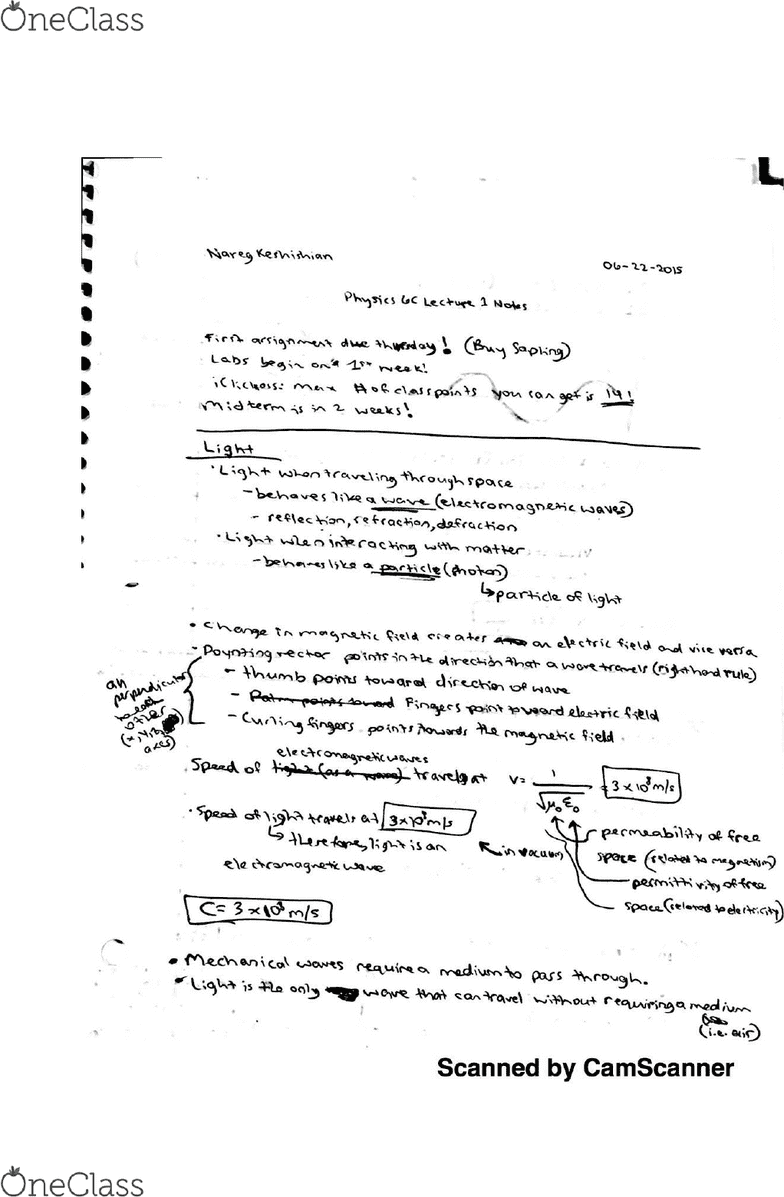 OneClass
Nareg Keshishian
06-22-2015
Physics 6C Lecture 1 Notes
First assignment due thursday! (Buy Sapling)
Labs begin on 1st week!
iClickers: max # of class points you can get is 14!
Midterm is in 2 weeks!
Light
• Light when traveling through space
- behaves like a wave (electromagnetic waves)
- reflection, refraction, defraction
• Light when interacting with matter
- behaves like a particle (photon)
↳ particle of light
• Change in magnetic field creates an electric field and vice versa
- Poynting vector points in the direction that a wave travels (right hand rule)
- thumb points toward direction of wave
- Palm points toward Fingers point toward electric field
- Curling fingers points towards the magnetic field.
all perpendicular to each other (x, y, z axes)
electromagnetic waves
Speed of light (as a wave) travels at v = 1/√μ₀ε₀ = 3×10⁸ m/s
• Speed of light travels at 3×10⁸ m/s
↳ therefore, light is an
electromagnetic wave
in vacuum
permeability of free
space (related to magnetism)
permittivity of free
space (related to electricity)
C = 3×10⁸ m/s
• Mechanical waves require a medium to pass through.
• Light is the only wave that can travel without requiring a medium
(i.e. air)
Scanned by CamScanner
OneClass